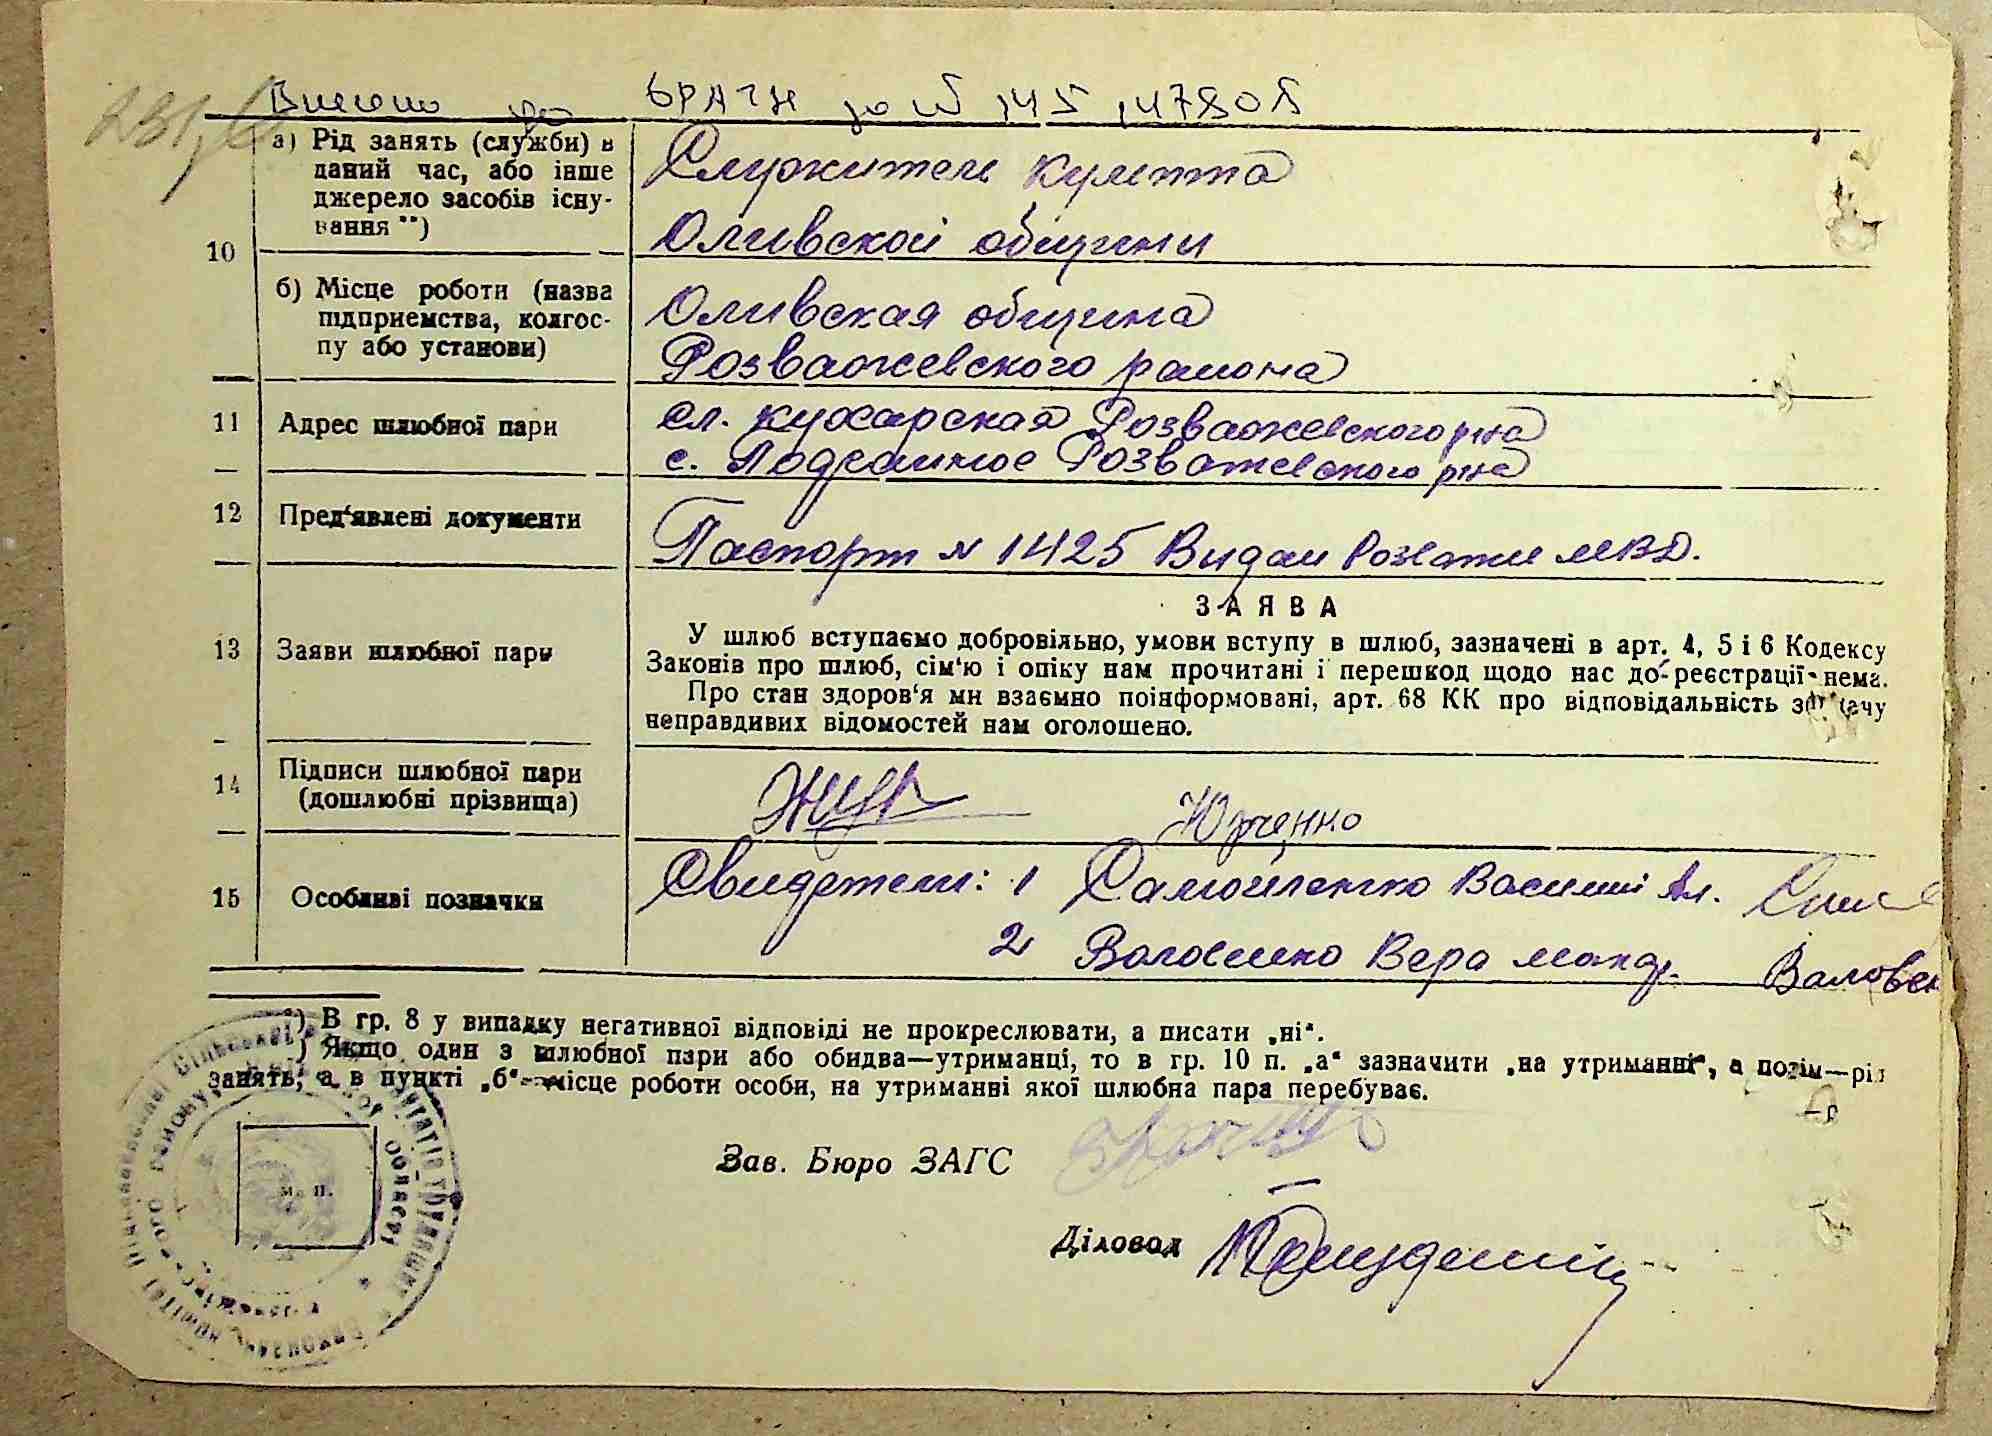 231,
Внесено до ДРАЦС за № 145 147805
а) Рід занять (служби) в
даний час, або інше
джерело засобів існу-
вання **)
Служитель культа
Оливской общины
10
б) Місце роботи (назва
підприємства, колгос-
пу або установи)
Оливская община
Розважевского района
11
Адрес шлюбної пари
сл. Кухарская Розважевского р-на
с. Розважевского р-на
12
Пред'явлені документи
Паспорт № 1425 Видан МВД.
13
Заяви шлюбної пари
ЗАЯВА
У шлюб вступаємо добровільно, умови вступу в шлюб, зазначені в арт. 4, 5 і 6 Кодексу
Законів про шлюб, сім'ю і опіку нам прочитані і перешкод щодо нас до реєстрації нема.
Про стан здоров'я ми взаємно поінформовані, арт. 68 КК про відповідальність за дачу
неправдивих відомостей нам оголошено.
14
Підписи шлюбної пари
(дошлюбні прізвища)
Юрченко
15
Особливі позначки
Свидетели: 1 Самойленко Василий Ал.
2 Волошенко Вера Макар.
*) В гр. 8 у випадку негативної відповіді не прокреслювати, а писати „ні“.
) Якщо один з шлюбної пари або обидва—утриманці, то в гр. 10 п. „а“ зазначити „на утриманні“, а потім—рід
занять, а в пункті „б“—місце роботи особи, на утриманні якої шлюбна пара перебуває.
м. п.
Зав. Бюро ЗАГС
Діловод